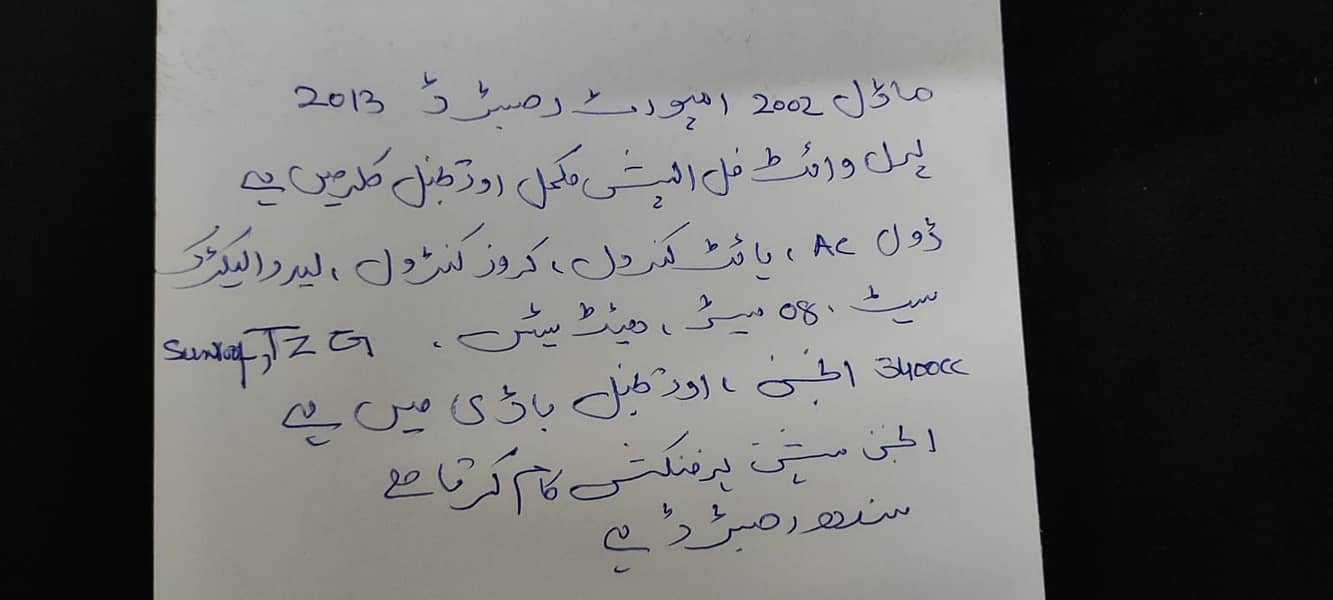 ماڈل 2002 امپورٹ رجسٹرڈ 2013
پرل وائٹ فل اپشن مکمل اورجنل کلر میں ہے
ڈول AC، ہائٹ کنٹرول، کروز کنٹرول، لیدر الیکٹرک
سیٹ. 08 سیٹر، ہیٹڈ سیٹس. TZG, Sunroof
3400cc انجن، اورجنل باڈی میں ہے
انجن سسپنشن پرفیکٹ کام کرتا ہے
سندھ رجسٹرڈ ہے